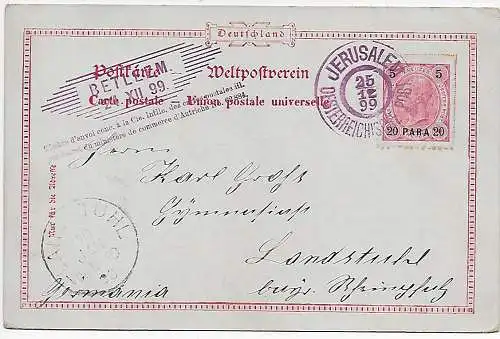 Deutschland
Postkarte Weltpostverein
Carte postale Union postale universelle
BETLEEM
XII 99.
JERUSALEM
25
12
99
5 5
20 PARA 20
Herrn
Karl Groß
Gymnasium
Landstuhl
bayr. Rheinpfalz
Germania
Nur für die Adresse